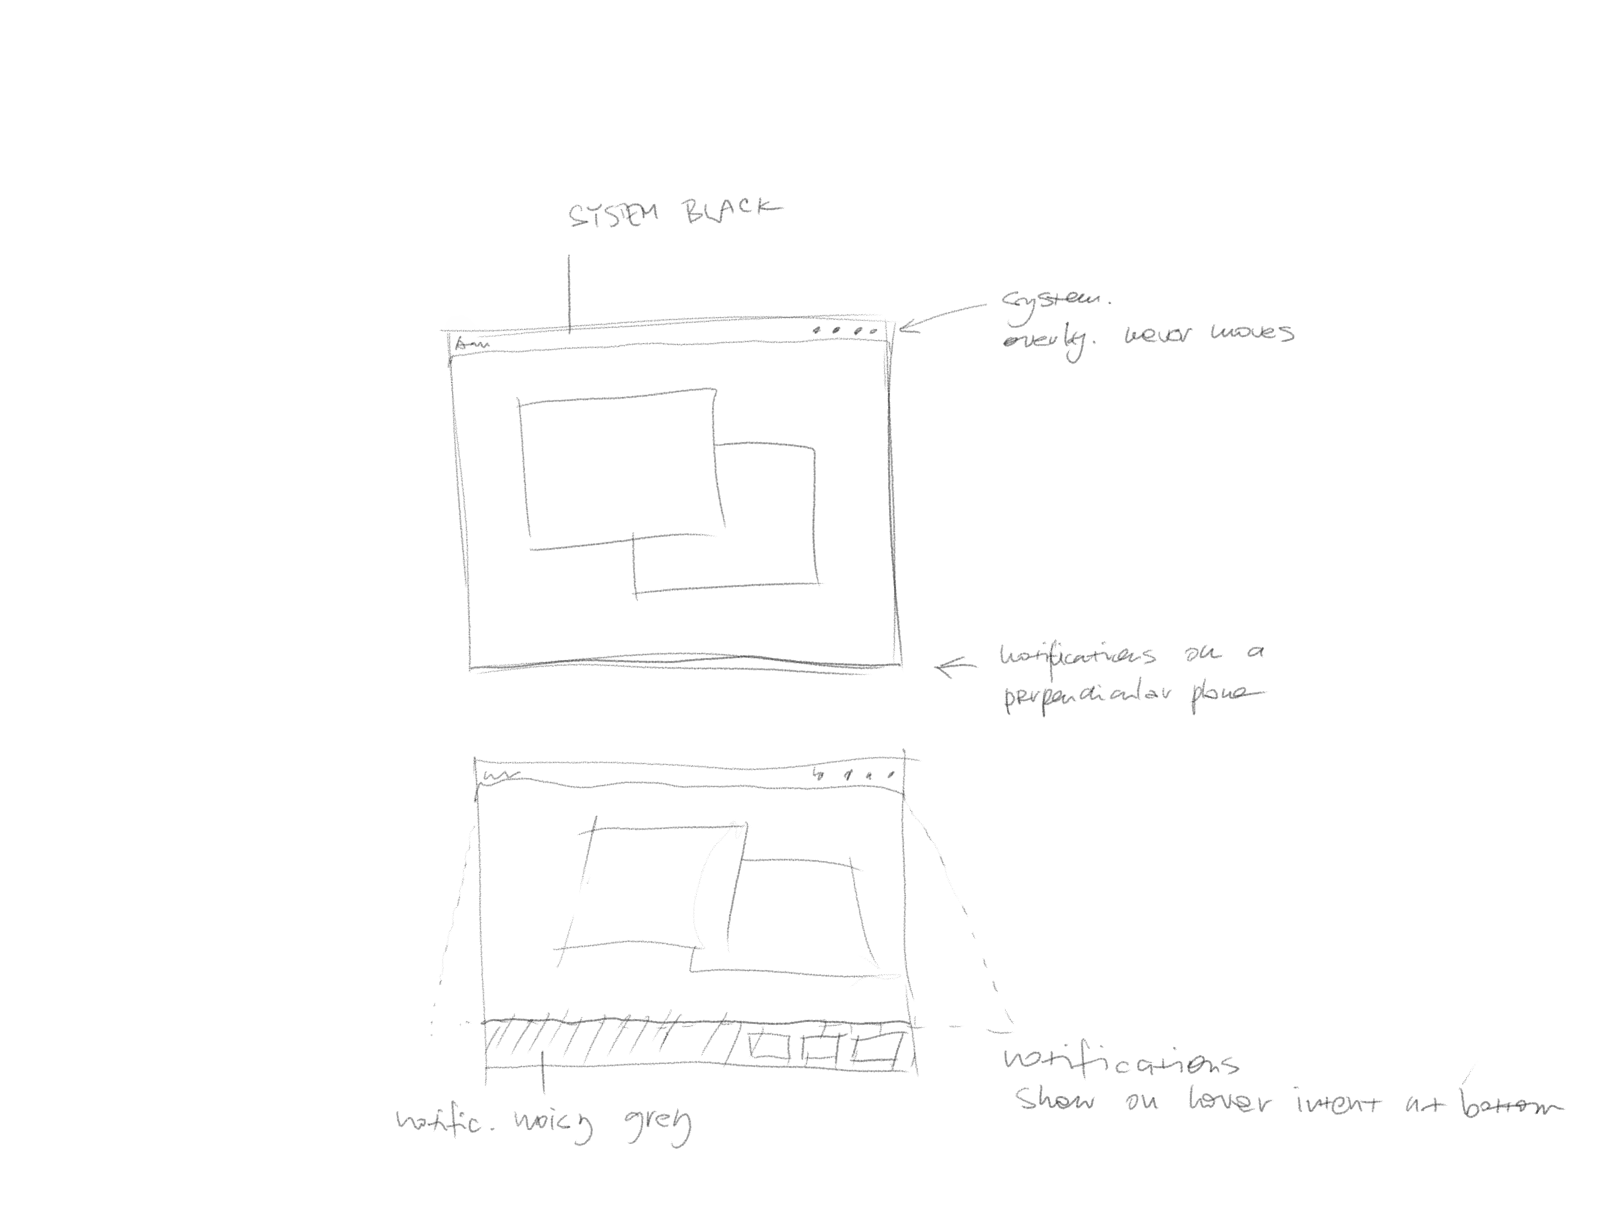 SYSTEM BLACK
system.
overlay. never moves
notifications on a
perpendicular plane
notifications
show on hover intent at bottom
notific. noisy grey